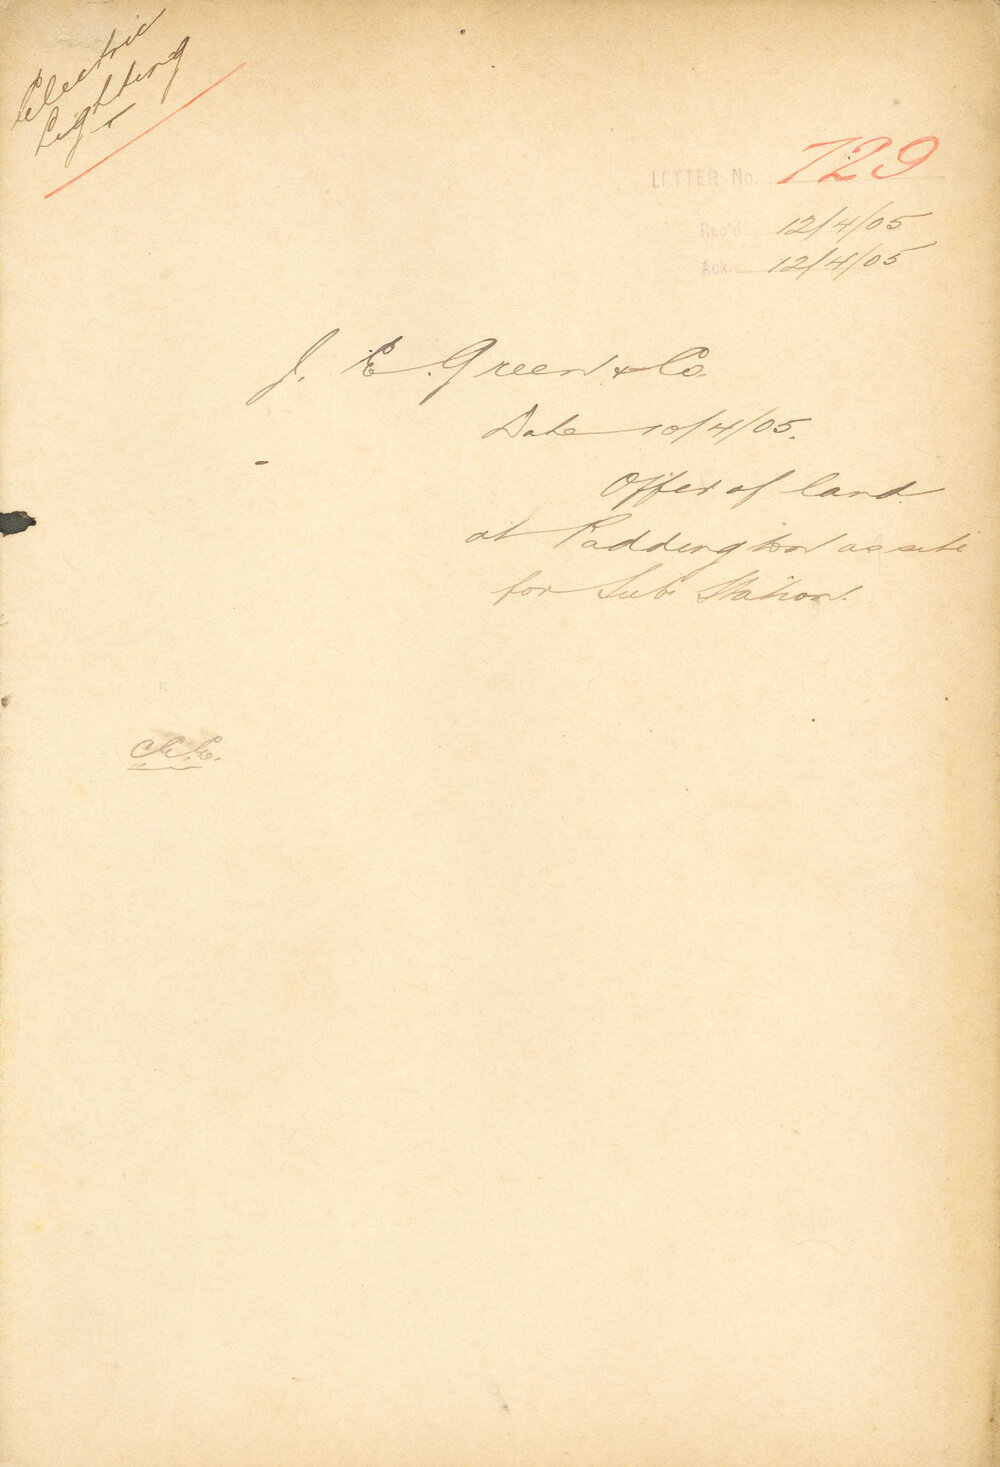 Electric
Lighting
LETTER No. 729
Rec'd 12/4/05
Ack. 12/4/05
J. E. Green & Co
Date 10/4/05.
Offer of land
at Paddington as site
for Sub Station.